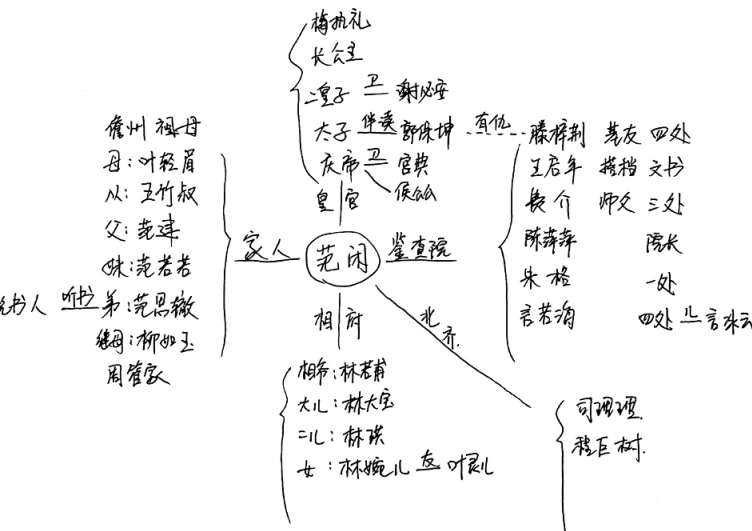 梅执礼
长公主
二皇子 卫 谢必安
太子 伴读 郭保坤 有仇 滕梓荆 基友 四处
庆帝 卫 宫典
侯公公
皇宫
王启年 搭档 文书
费介 师父 三处
陈萍萍 院长
朱格 一处
言若海 四处 儿 言冰云
儋州 祖母
母:叶轻眉
从:五竹叔
父:范建
妹:范若若
说书人 听书 弟:范思辙
继母:柳如玉
周管家
家人 范闲 鉴查院
相府
北齐
相爷:林若甫
大儿:林大宝
二儿:林珙
女:林婉儿 友 叶灵儿
司理理
程巨树